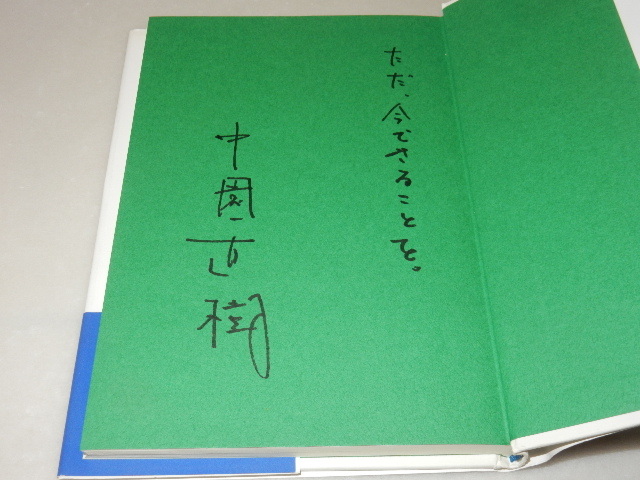 ただ、今できることを。
中園直樹